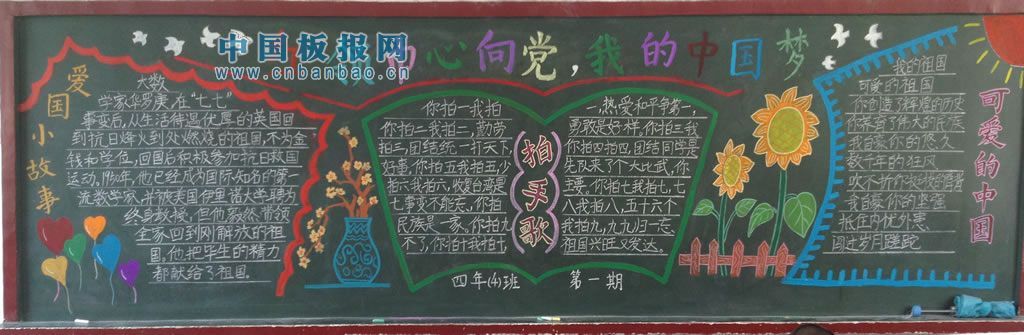 中国板报网
www.cnbanbao.cn
的心向党,我的中国梦
爱国小故事
大数
学家华罗庚,在“七七”
事变后,从生活待遇优厚的英国回
到抗日烽火到处燃烧的祖国,不为金
钱和学位,回国后积极参加抗日救国
运动。1950年,他已经成为国际知名的第一
流数学家,并被美国伊里诺大学聘为
终身教授,但他毅然带领
全家回到刚解放的祖
国,他把毕生的精力
都献给了祖国。
你拍一我拍
你拍二我拍二,勤劳
拍三,团结统一打天下,
你拍五我拍五,少
拍六我拍六,收复台湾是
七事变不能忘,你拍
民族是一家,你拍九
不了,你拍十我拍十,
拍手歌
一,热爱和平争第一,
勇敢是好样,你拍三我
你拍四拍四,团结同学是
先队来了个大比武,你
你拍七我拍七,七
八我拍八,五十六个
我拍九,九九归一忘
祖国兴旺又发达。
四年(4)班 第一期
我的祖国
可爱的祖国
你创造了辉煌的历史
你养育了伟大的民族
我自豪你的悠久
数千年的狂风
吹不折你挺拔的脊背
我自豪你的坚强
抵住内忧外患
闯过岁月蹉跎
可爱的中国